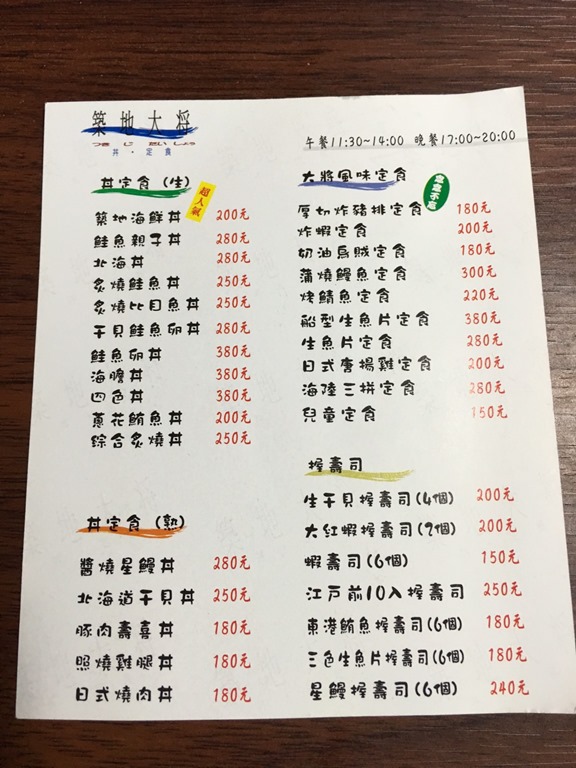 築地大将
つきじたいしょう
丼・定食
午餐11:30~14:00 晚餐17:00~20:00
丼定食(生)
超人氣
築地海鮮丼 200元
鮭魚親子丼 280元
北海丼 280元
炙燒鮭魚丼 250元
炙燒比目魚丼 250元
干貝鮭魚卵丼 280元
鮭魚卵丼 380元
海膽丼 380元
四色丼 380元
蔥花鮪魚丼 200元
綜合炙燒丼 250元
丼定食(熟)
醬燒星鰻丼 280元
北海道干貝丼 250元
豚肉壽喜丼 180元
照燒雞腿丼 180元
日式燒肉丼 180元
大將風味定食
念念不忘
厚切炸豬排定食 180元
炸蝦定食 200元
奶油烏賊定食 180元
蒲燒鰻魚定食 300元
烤鯖魚定食 220元
船型生魚片定食 380元
生魚片定食 280元
日式唐揚雞定食 200元
海陸三拼定食 280元
兒童定食 150元
握壽司
生干貝握壽司(4個) 200元
大紅蝦握壽司(2個) 200元
蝦壽司(6個) 150元
江戸前10入握壽司 250元
東港鮪魚握壽司(6個) 180元
三色生魚片握壽司(6個) 180元
星鰻握壽司(6個) 240元